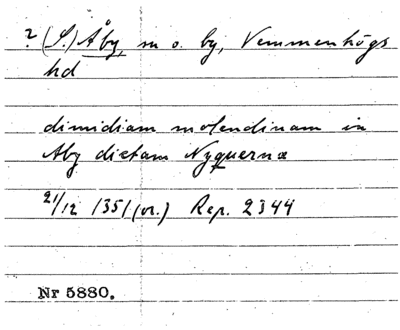 ? (S.) Åby, m o. by, Vemmenhögs
hd
dimidiam molendinam in
Aby dictam Nyquerna
21/12 1351 (or.) Rep. 2344
Nr 5880.